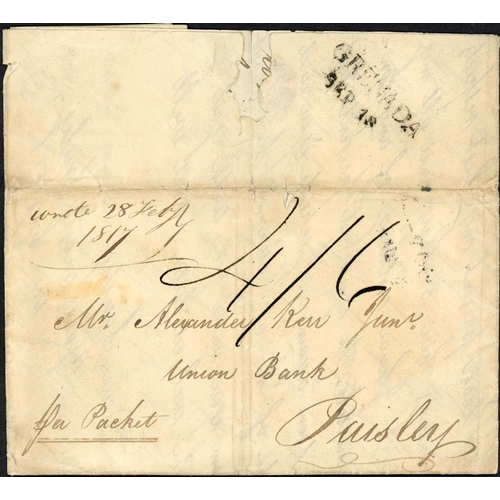 GRENADA
SEP 18
wrote 28 Feby
1817
4/6
Mr. Alexander Kerr Junr.
Union Bank
per Packet
Paisley